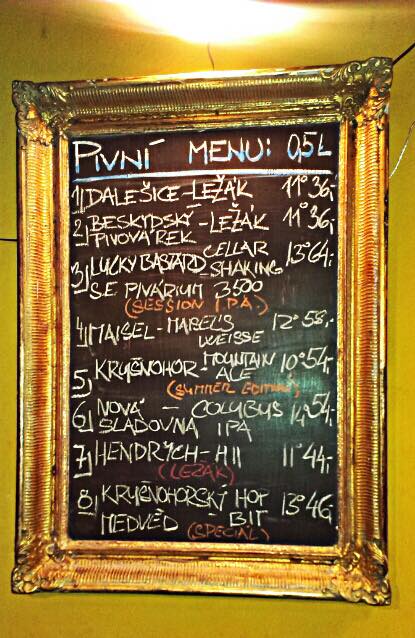 PIVNÍ MENU: 0,5L
1) DALEŠICE - LEŽÁK 11° 36,-
2) BESKYDSKÝ PIVOVÁREK - LEŽÁK 11° 36,-
3) LUCKY BASTARD CELLAR SHAKING 13° 64,-
S.E. PIVÁRIUM 3500
(SESSION IPA)
4) MAISEL - MABEL'S WEISSE 12° 58,-
5) KRUŠNOHOR - MOUNTAIN ALE 10° 54,-
(SUMMER EDITION)
6) NOVÁ SLADOVNA - COLUMBUS IPA 14° 54,-
7) HENDRYCH - H11 11° 44,-
(LEŽÁK)
8) KRUŠNOHORSKÝ MEDVĚD HOP BIT 13° 46,-
(SPECIAL)